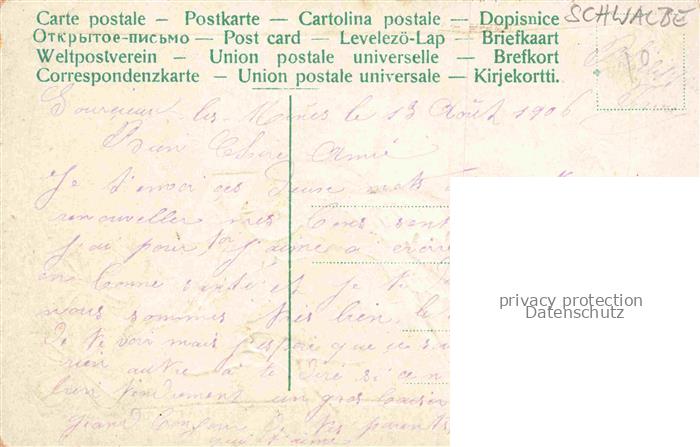 Carte postale – Postkarte – Cartolina postale – Dopisnice
Открытое-письмо – Post card – Levelező-Lap – Briefkaart
Weltpostverein – Union postale universelle – Brefkort
Correspondenzkarte – Union postale universale – Kirjekortti.
SCHWALBE
les Mines le 13 Août 1906
Bien Chère Amie
Je t'envoi ces deuse mots
renouveller mes bons sent
j'ai pour toi j'aime à croire
en bonne santé et je te
nous sommes très bien. le
de te voir mais j'espère que ça
rien autre à te dire si ce n
bien tendrement un gros baiser
grand bonjour à tes parents
qui t'aime
privacy protection
Datenschutz